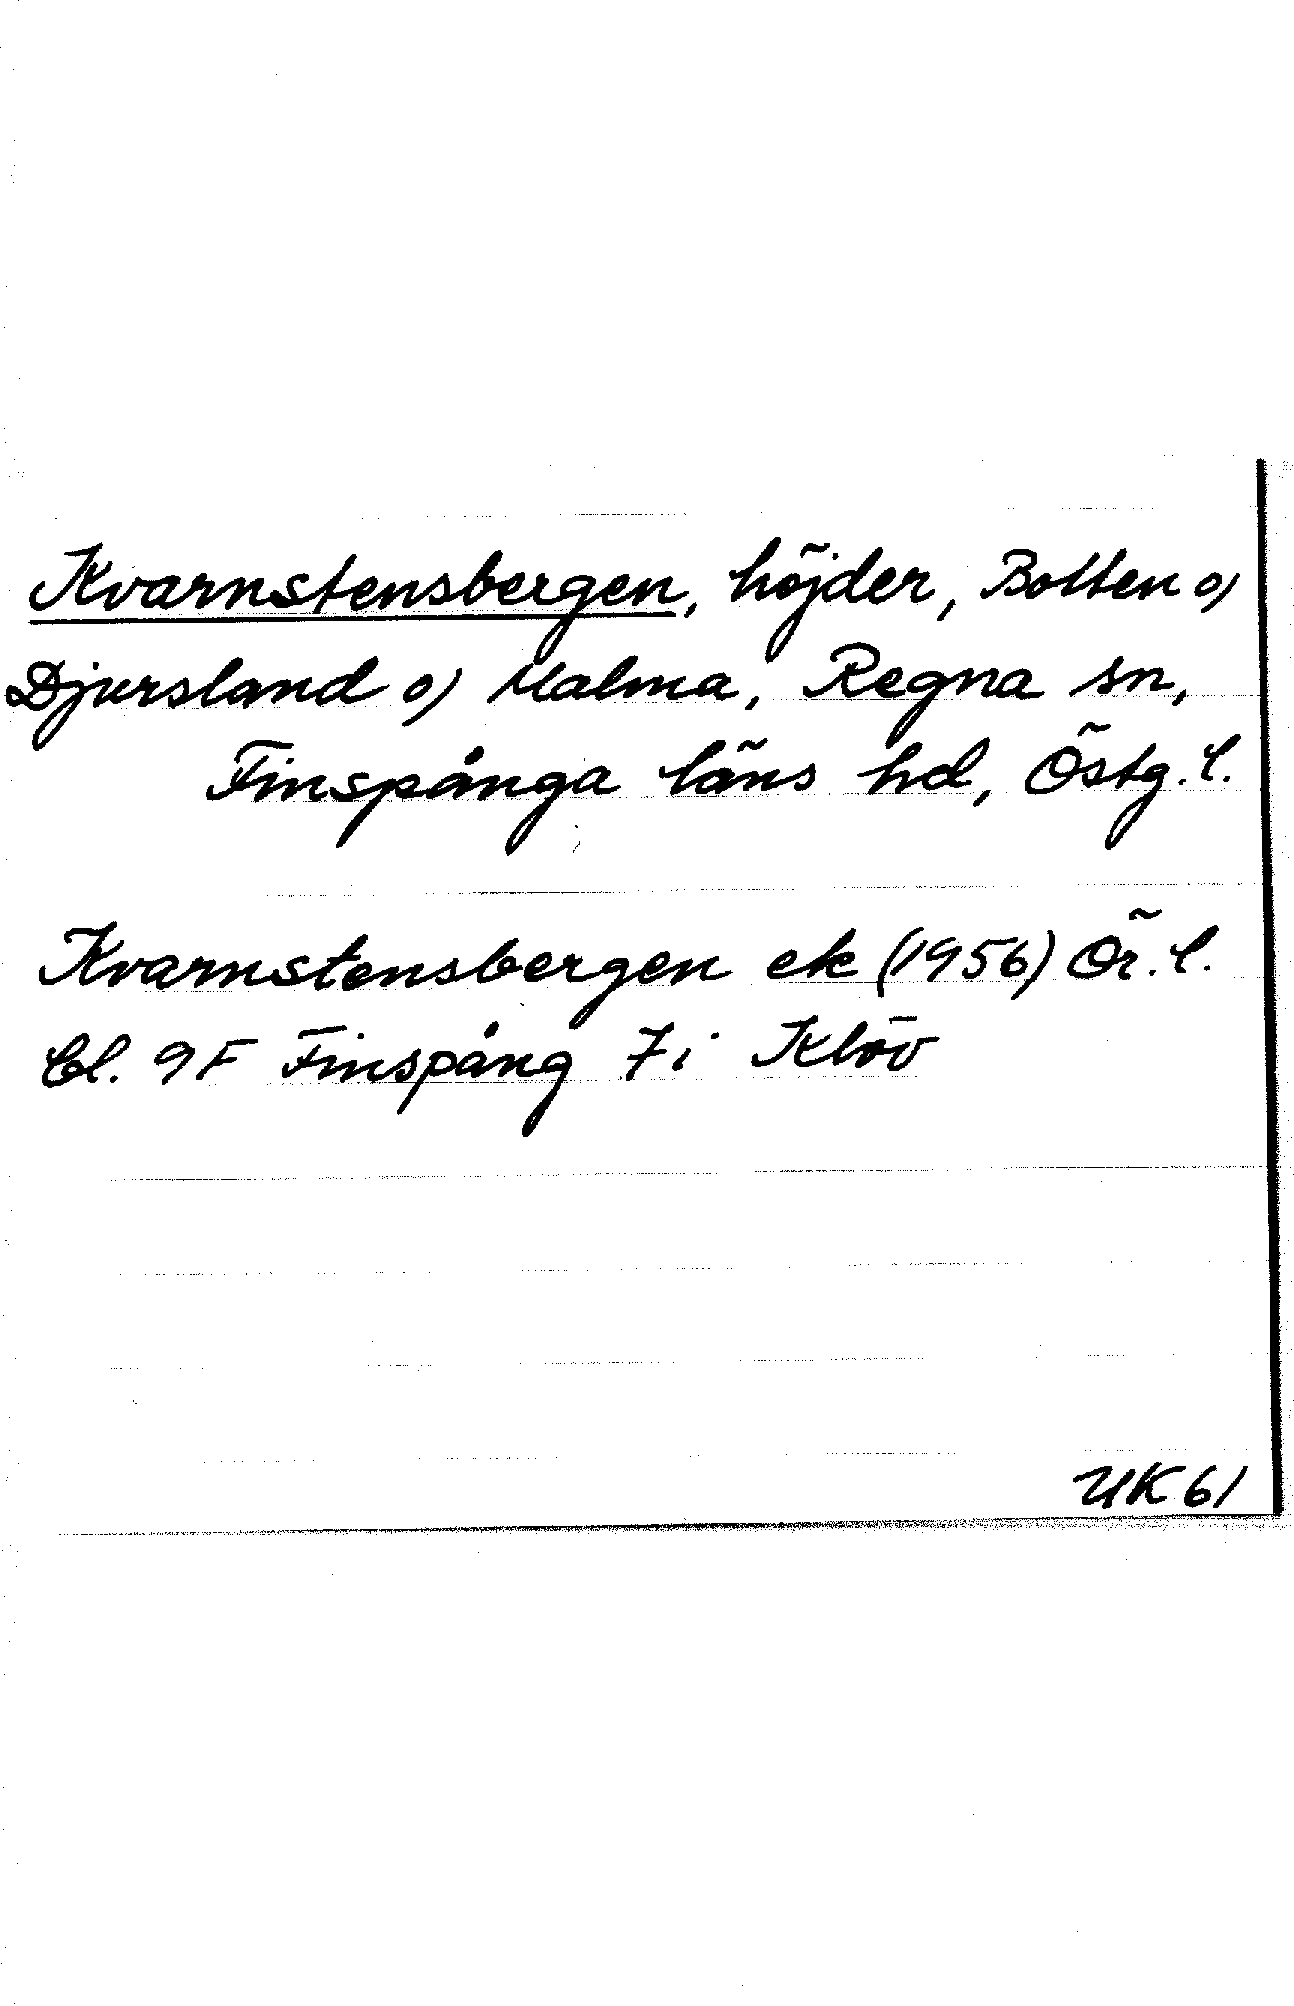 Kvarnstensbergen, höjder, Botten o)
Djursland o) Malma, Regna sn,
Finspånga läns hd, Östg. l.
Kvarnstensbergen ek (1956) Ör. l.
bl. 9F Finspång 7i Klöv
UK61